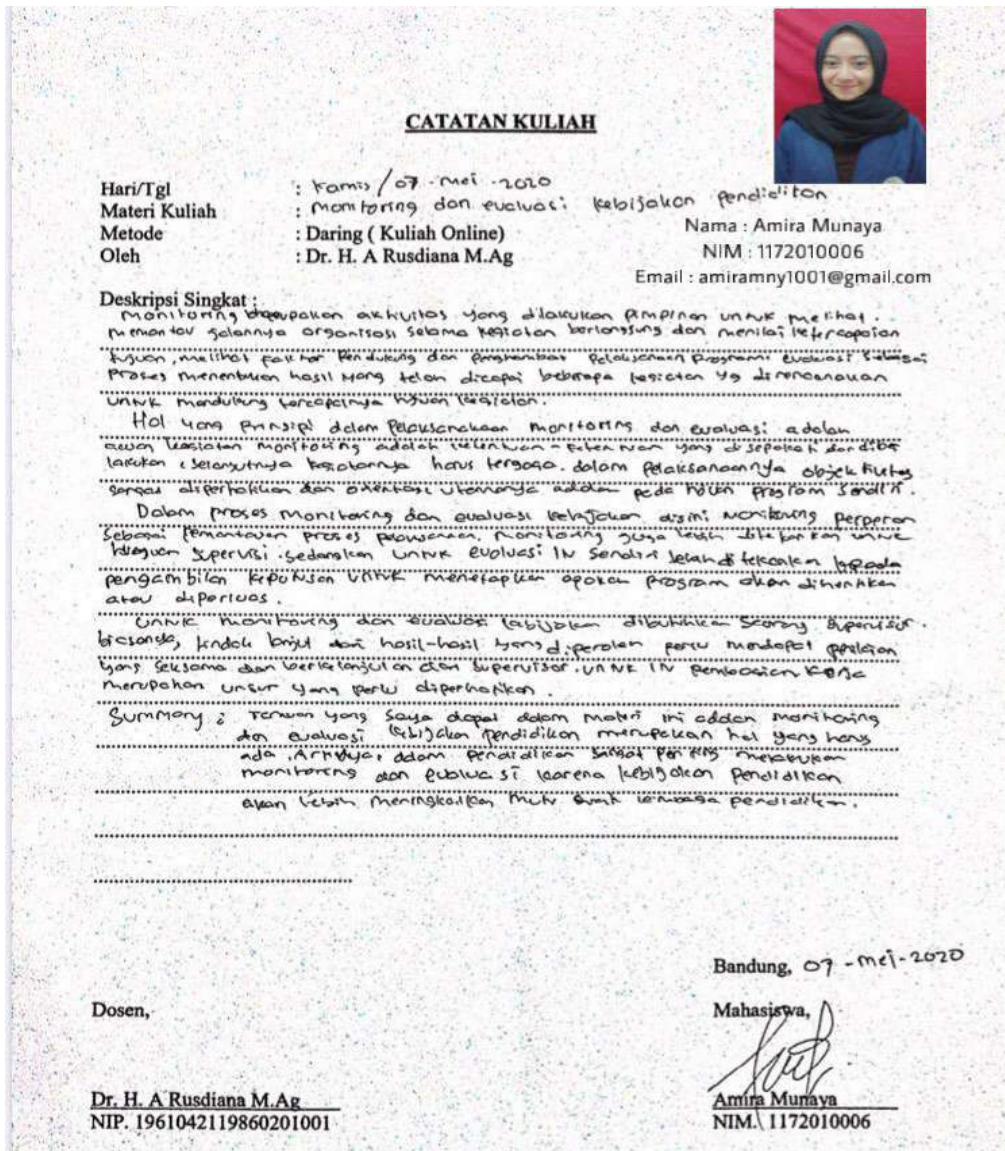 CATATAN KULIAH
Hari/Tgl : Kamis / 07 - Mei - 2020
Materi Kuliah : Monitoring dan evaluasi kebijakan pendidikan
Metode : Daring ( Kuliah Online)
Oleh : Dr. H. A Rusdiana M.Ag
Nama : Amira Munaya
NIM : 1172010006
Email : amiramny1001@gmail.com
Deskripsi Singkat :
Monitoring merupakan aktivitas yang dilakukan pimpinan untuk melihat.
memantau jalannya organisasi selama kegiatan berlangsung dan menilai ketercapaian
tujuan, melihat faktor pendukung dan penghambat pelaksanaan program. evaluasi sebagai
proses menentukan hasil yang telah dicapai beberapa kegiatan yg direncanakan
untuk mendukung tercapainya tujuan kegiatan.
Hal yang prinsipi dalam pelaksanakaan monitoring dan evaluasi adalah
acuan kegiatan monitoring adalah ketentuan - ketentuan yang disepakati dan
lakukan, selanjutnya harus terjaga. dalam pelaksanaannya objektivitas
sangat diperhatikan dan orientasi utamanya adalah pada tujuan program sendiri.
Dalam proses monitoring dan evaluasi kebijakan disini monitoring perperan
sebagai pemantauan proses pelaksanaan. monitoring juga lebih ditekankan untuk
tujuan supervisi. sedangkan untuk evaluasi itu sendiri kepada
pengambilan keputusan untuk menetapkan apakah program akan dihentikan
atau diperluas.
Untuk monitoring dan evaluasi kebijakan dibutuhkan seorang supervisor.
biasanya, tindak lanjut dari hasil-hasil yang diperoleh perlu mendapat
yang seksama dan berkelanjutan dari supervisor. untuk itu pembagian kerja
merupakan unsur yang perlu diperhatikan.
Summary : yang saya dapat dalam materi ini adalah monitoring
dan evaluasi kebijakan pendidikan merupakan hal yang harus
ada. Artinya, dalam pendidikan sangat penting melakukan
monitoring dan evaluasi karena kebijakan pendidikan
akan lebih meningkatkan mutu lembaga pendidikan.
Bandung, 07 - Mei - 2020
Dosen,
Mahasiswa,
Dr. H. A Rusdiana M.Ag
NIP. 1961042119860201001
Amira Munaya
NIM. 1172010006